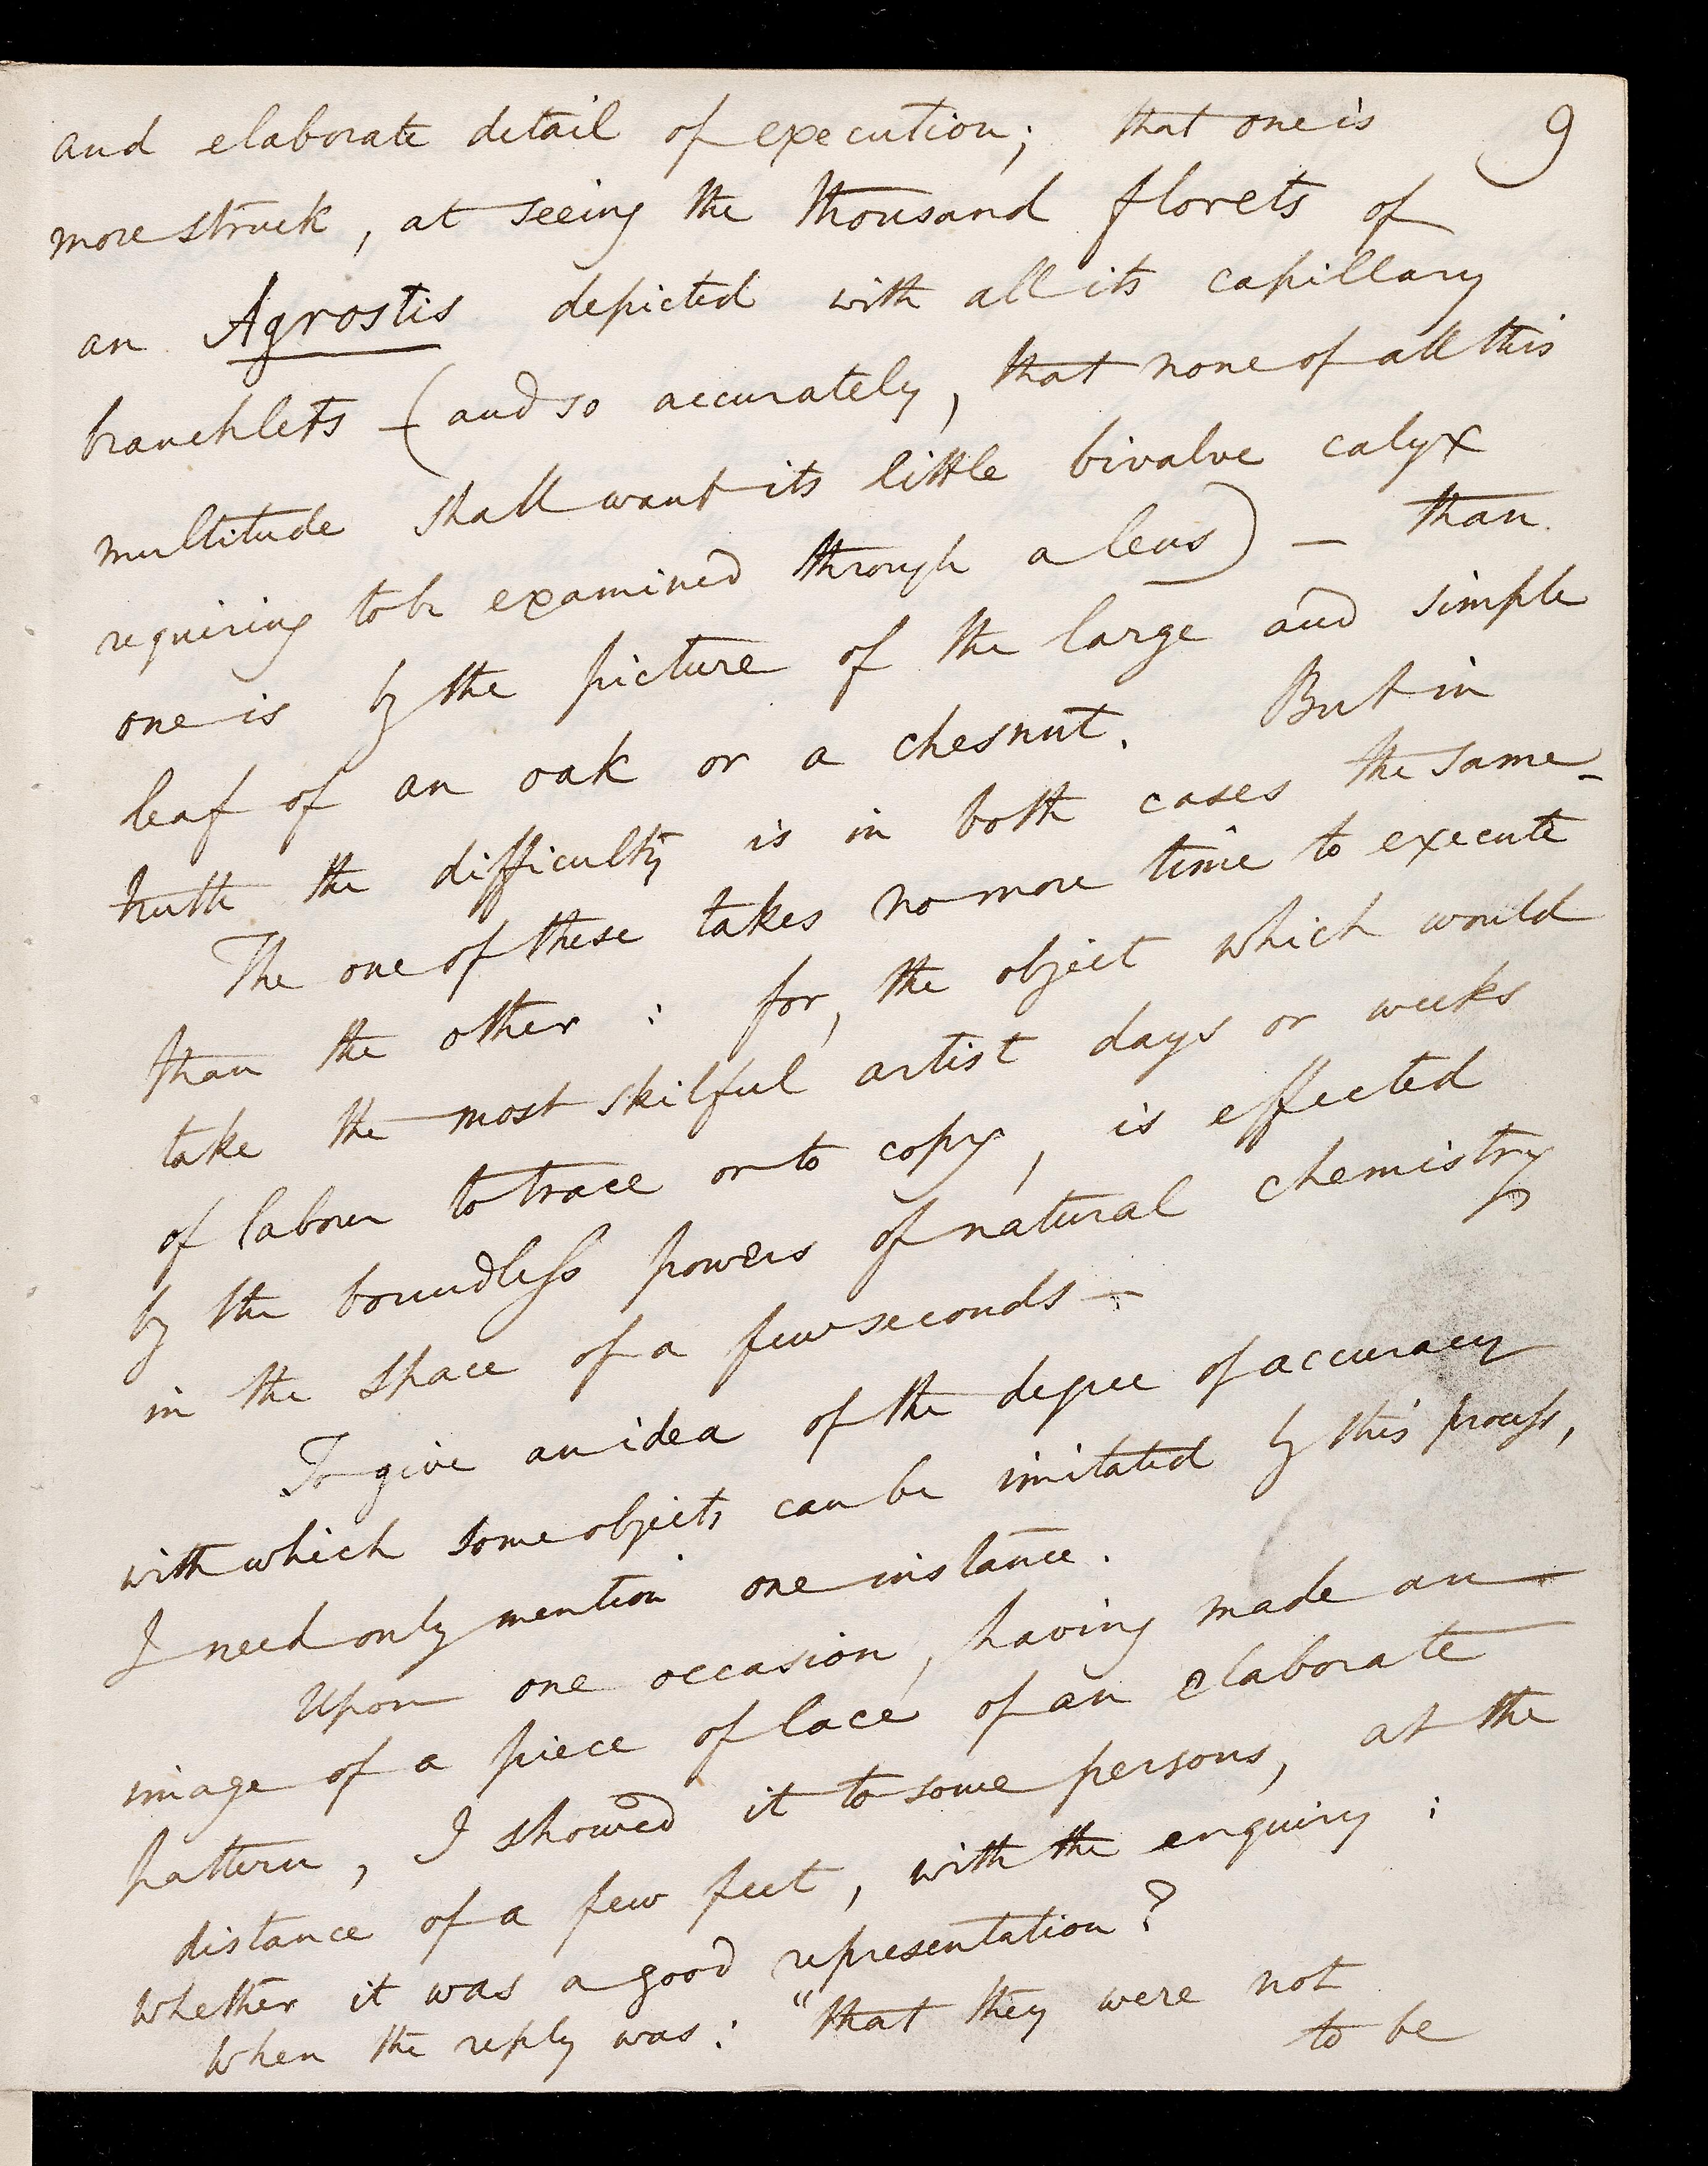 and elaborate detail of execution; that one is 9
more struck, at seeing the thousand florets of
an Agrostis depicted with all its capillary
branchlets (and so accurately, that none of all this
multitude shall want its little bivalve calyx
requiring to be examined through a lens) — than
one is by the picture of the large and simple
leaf of an oak or a chesnut. But in
truth the difficulty is in both cases the same -
The one of these takes no more time to execute
than the other : for, the object which would
take the most skilful artist days or weeks
of labour to trace or to copy, is effected
by the boundless powers of natural chemistry
in the space of a few seconds —
To give an idea of the degree of accuracy
with which some objects can be imitated by this process,
I need only mention one instance.
Upon one occasion, having made an
image of a piece of lace of an elaborate
pattern, I showed it to some persons, at the
distance of a few feet, with the enquiry :
whether it was a good representation?
When the reply was: "that they were not
to be